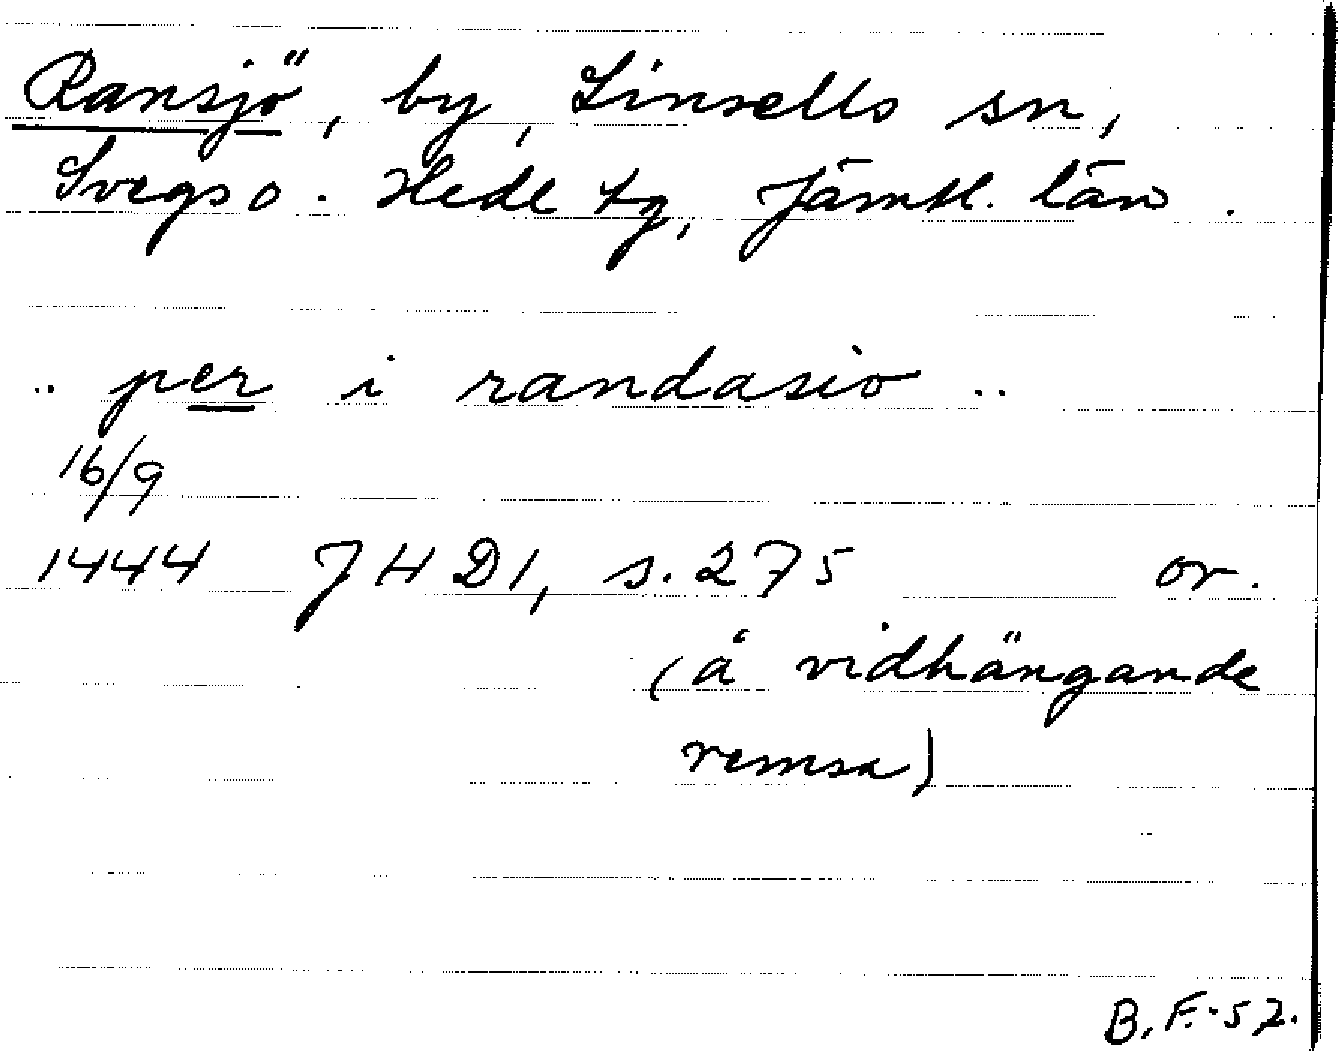 Ransjö, by, Linsells sn,
Svegs o. Hede tg, Jämtl. län.
.. per i randasio ..
16/9
1444 JHD1, s. 275 or.
(å vidhängande
remsa)
B.F.-52.